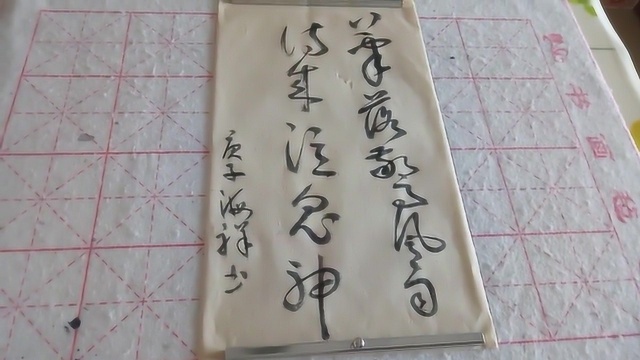 筆落驚风雨
诗成泣鬼神
庚子海祥书
书画毡